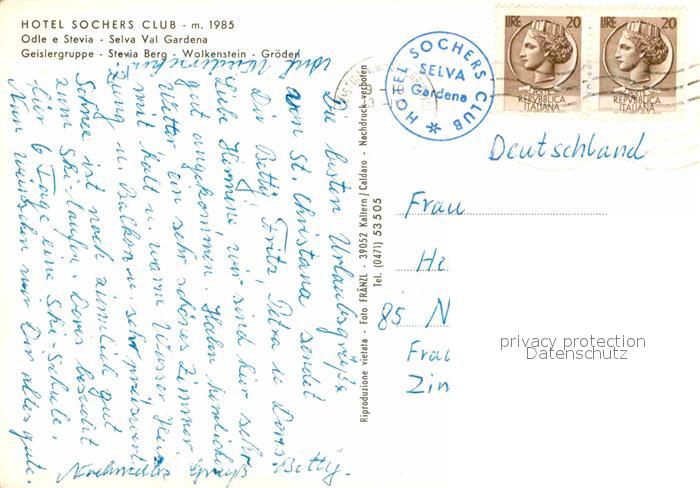 HOTEL SOCHERS CLUB - m. 1985
Odle e Stevia - Selva Val Gardena
Geislergruppe - Stevia Berg - Wolkenstein - Gröden
Die besten Urlaubsgrüße
von St. Christana sendet
Dir Betti, Fritz, Petra u Doris
Liebe Hermine wir sind hier sehr
gut angekommen. Haben herrliches
Wetter ein sehr schönes Zimmer
mit kalt u. warm Wasser Hei-
zung u. Balkon u. sehr preiswert.
Schnee ist noch ziemlich gut
zum Ski-laufen. Doris besucht
für 6 Tage eine Ski-Schule.
Nun wünschen wir Dir alles gute.
Nochmals Gruß Betty.
Riproduzione vietata - Foto FRÄNZL - 39052 Kaltern/Caldaro - Nachdruck verboten
Tel. (0471) 53505
HOTEL SOCHERS CLUB
SELVA
Gardena
LIRE 20
REPVBBLICA
ITALIANA
LIRE 20
REPVBBLICA
ITALIANA
Deutschland
Frau
He
85 N
Frau
Zim
privacy protection
Datenschutz